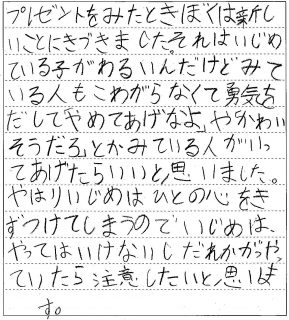 プレゼントをみたときぼくは新し
いことにきづきました。それはいじめ
ている子がわるいんだけどみて
いる人もこわがらなくて勇気を
だしてやめてあげなよ」やかわい
そうだろ」とかみている人がいっ
てあげたらいいと思いました。
やはりいじめはひとの心をき
ずつけてしまうのでいじめは、
やってはいけないしだれかがやっ
ていたら注意したいと思いま
す。